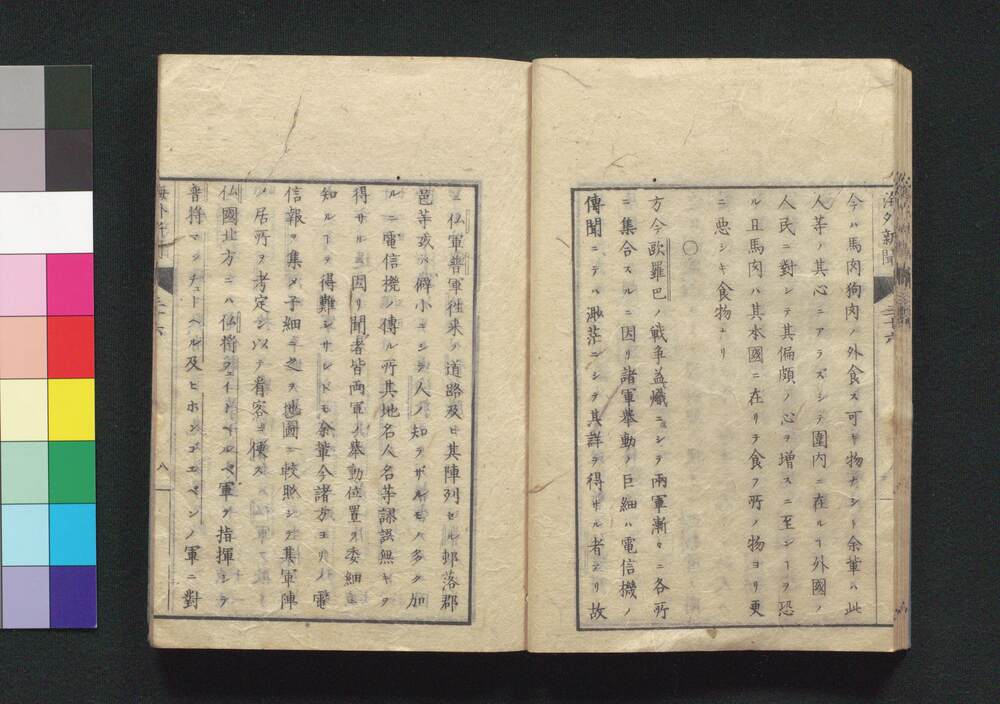 海外新聞 三十六
今ハ馬肉狗肉ノ外食ス可キ物ナシト余輩ハ此
人等ノ其心ニアラズシテ圍内ニ在ルヿ外國ノ
人民ニ對シテ其偏頗ノ心ヲ增スニ至ランヿヲ恐
ル且馬肉ハ其本國ニ在リテ食フ所ノ物ヨリ更
ニ悪シキ食物ナリ
〇
方今歐羅巴ノ戦争益熾ニシテ兩軍漸々ニ各所
ニ集合スルニ因リ諸軍擧動ノ巨細ハ電信機ノ
傳聞ニテハ渺茫ニシテ其詳ヲ得サル者アリ故
ニ仏軍普軍往来ノ道路及ヒ其陣列セル邨落郡
邑等或ハ僻小ニシテ人ノ知ラザルモノ多ク加
ルニ電信機ノ傳ル所其地名人名等謬誤無キヲ
得サルニ因リ聞者皆両軍ノ擧動位置ヲ委細ニ
知ルヿヲ得難シサレドモ余輩今諸方ヨリノ電
信報ヲ集メ子細ニ之ヲ地圖ニ較照シテ其軍陣
ノ居所ヲ考定シ以テ看客ニ便ス
仏國北方ニハ仏将フェイドヘルベ軍ヲ指揮シテ
普将マンチュドヘル及ヒホンゴエベンノ軍ニ對
海外新聞 三十六 八